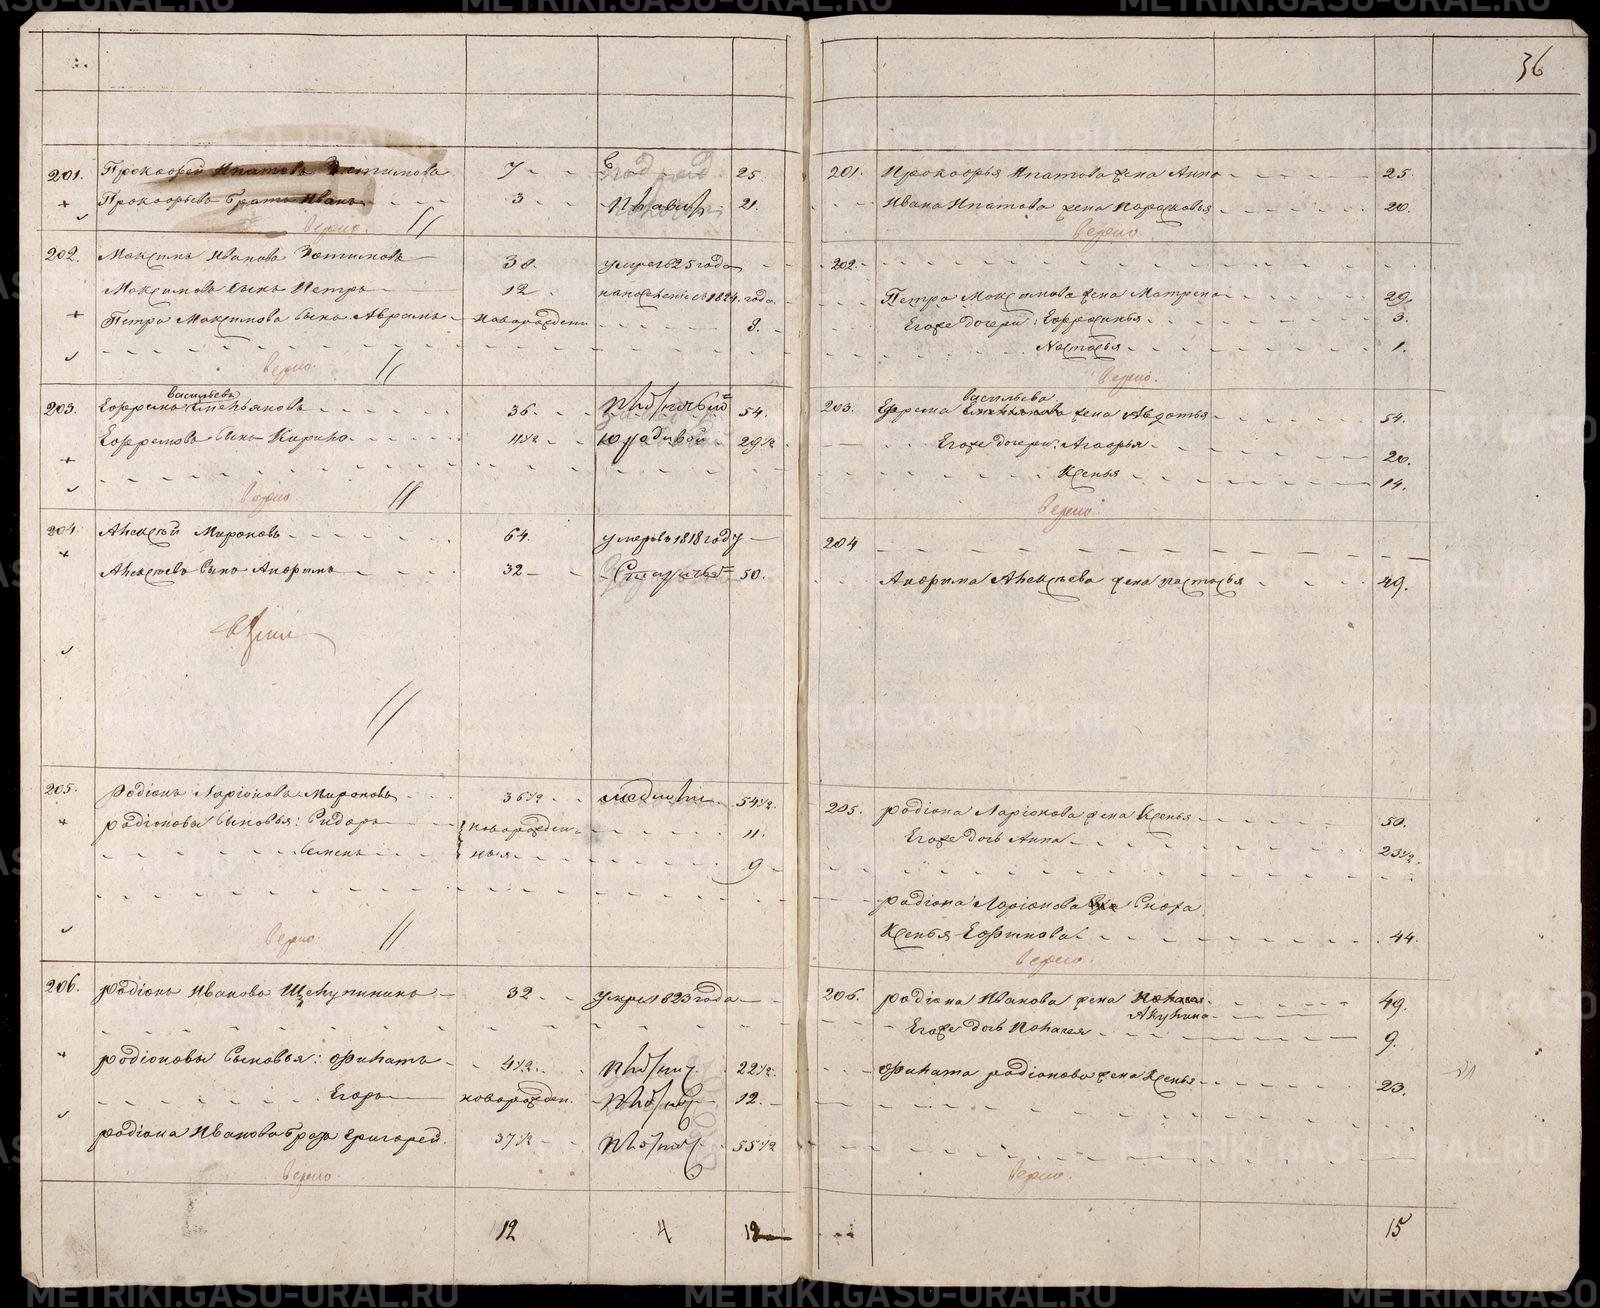 36
201. Прокофей Ипатовъ Устиновъ 7 25
Прокофьевъ братъ Иванъ 3 21.
верно.
202. Максимъ Ивановъ Устиновъ 38. умре 1825 года
Максимовъ сынъ Петръ 12 1824. года
Петра Максимова сынъ Аврамъ новорожден 8.
верно.
васильевъ
203. Ефремъ Емельяновъ 36 54.
Ефремовъ сынъ Кирило 11 1/2 29 1/2
верно
204. Алексѣй Мироновъ 64. умеръ въ 1818 году
Алексѣевъ сынъ Анфимъ 32 50.
205. Родіонъ Ларіоновъ Мироновъ 36 1/2 54 1/2.
Родіоновы сыновья: Сидоръ новорожден 11.
Семенъ ныя 9
верно.
206. Родіонъ Ивановъ Щелупининъ 32 умре 1823 года
Родіоновы сыновья: Филатъ 4 1/2 22 1/2.
Егоръ новорожден. 12.
Родіона Иванова братъ Григорей 37 1/2 55 1/2
верно
12 4 12
201. Прокофья Ипатова жена Анна 25.
Ивана Ипатова жена Парасковья 20.
верно.
202.
Петра Максимова жена Матрена 29.
Егоже дочери: Ефросинья 3.
Настасья 1.
верно.
васильева
203. Ефрема Емельянова жена Авдотья 54.
Егоже дочери: Агафья 20.
Ксенья 14.
верно.
204
Анфима Алексѣева жена настасья 49.
205. Родіона Ларіонова жена Ксенья 50.
Егоже дочь Анна 23 1/2.
Родіона Ларіонова Сноха
Ксенья Ефимова 44.
верно.
206. Родіона Иванова жена
Акулина 49.
Егоже дочь Поналея 9.
Филата родіонова жена Ксенья 23.
верно.
15
METRIKI.GASO-URAL.RU